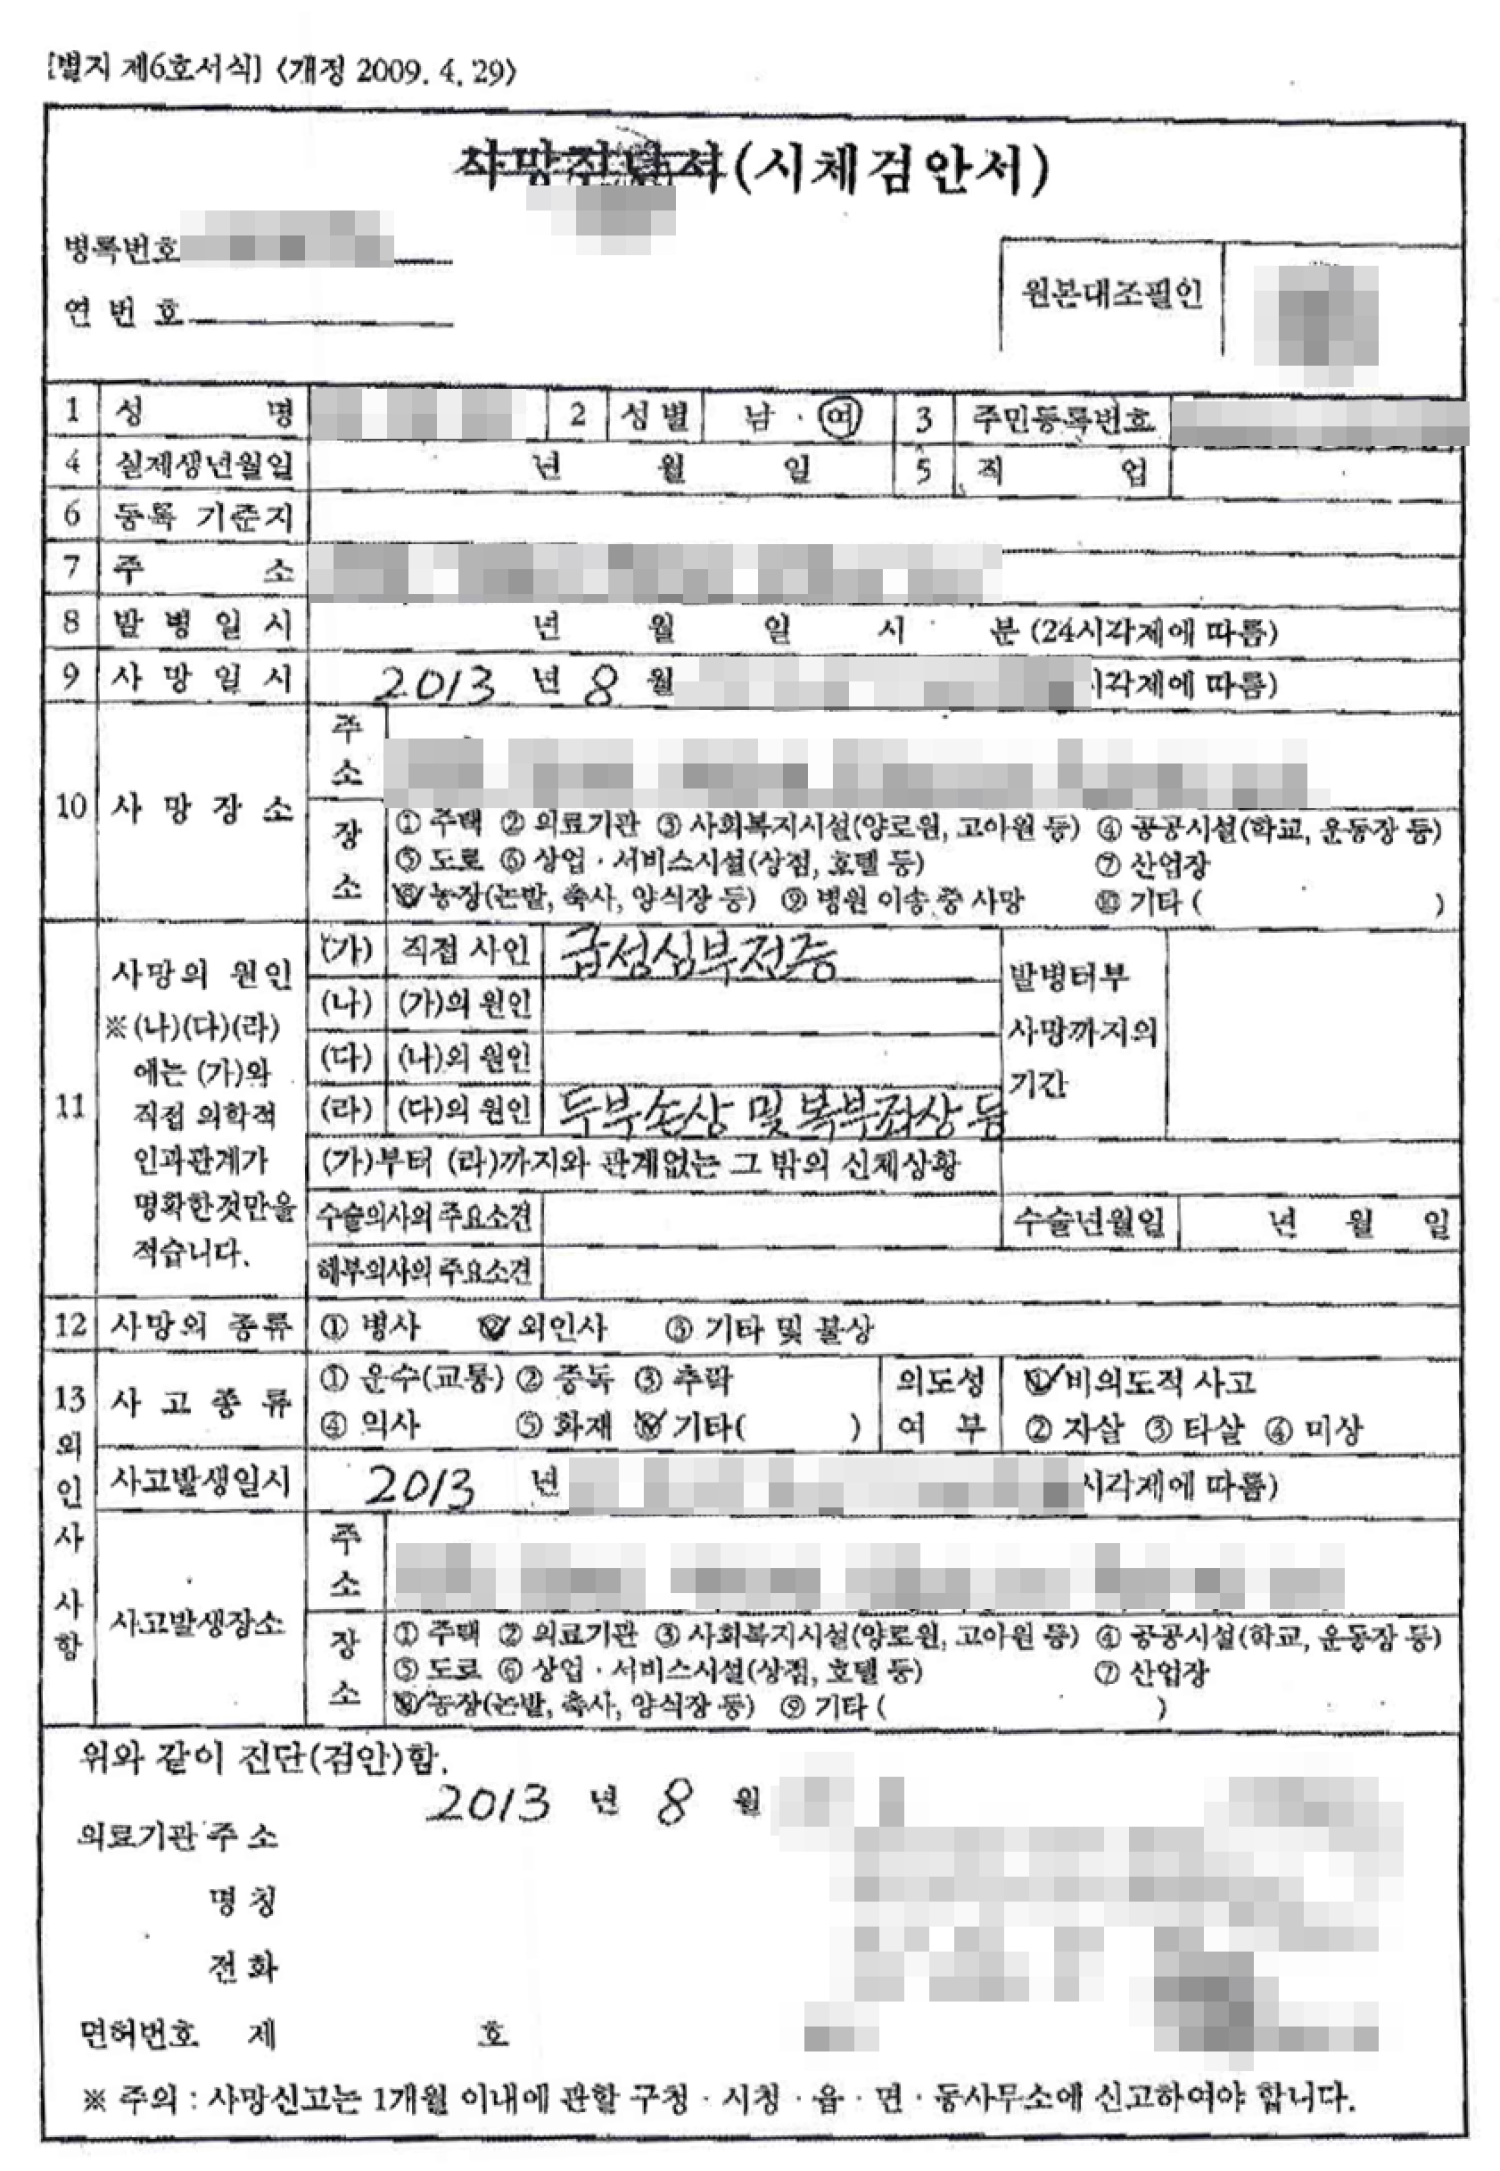 [별지 제6호서식] <개정 2009. 4. 29>
사망진단서(시체검안서)
병록번호
연 번 호
원본대조필인
1 성 명 2 성별 남 · 여 3 주민등록번호
4 실제생년월일 년 월 일 5 직 업
6 등록 기준지
7 주 소
8 발 병 일 시 년 월 일 시 분 (24시각제에 따름)
9 사 망 일 시 2013 년 8 월 시각제에 따름)
10 사 망 장 소
주소
장소
① 주택 ② 의료기관 ③ 사회복지시설(양로원, 고아원 등) ④ 공공시설(학교, 운동장 등)
⑤ 도로 ⑥ 상업 · 서비스시설(상점, 호텔 등) ⑦ 산업장
⑧ 농장(논밭, 축사, 양식장 등) ⑨ 병원 이송 중 사망 ⑩ 기타 ( )
11 사망의 원인
※(나)(다)(라)
에는 (가)와
직접 의학적
인과관계가
명확한것만을
적습니다.
(가) 직접 사인 급성심부전증
(나) (가)의 원인
(다) (나)의 원인
(라) (다)의 원인 두부손상 및 복부좌상 등
발병터부
사망까지의
기간
(가)부터 (라)까지와 관계없는 그 밖의 신체상황
수술의사의 주요소견 수술년월일 년 월 일
해부의사의 주요소견
12 사망의 종류 ① 병사 ② 외인사 ③ 기타 및 불상
13 외인사 사항
사 고 종 류 ① 운수(교통) ② 중독 ③ 추락
④ 익사 ⑤ 화재 ⑥ 기타( )
의도성 여 부 ① 비의도적 사고
② 자살 ③ 타살 ④ 미상
사고발생일시 2013 년 시각제에 따름)
사고발생장소
주소
장소
① 주택 ② 의료기관 ③ 사회복지시설(양로원, 고아원 등) ④ 공공시설(학교, 운동장 등)
⑤ 도로 ⑥ 상업 · 서비스시설(상점, 호텔 등) ⑦ 산업장
⑧ 농장(논밭, 축사, 양식장 등) ⑨ 기타 ( )
위와 같이 진단(검안)함.
2013 년 8 월
의료기관 주 소
명 칭
전 화
면허번호 제 호
※ 주의 : 사망신고는 1개월 이내에 관할 구청 · 시청 · 읍 · 면 · 동사무소에 신고하여야 합니다.